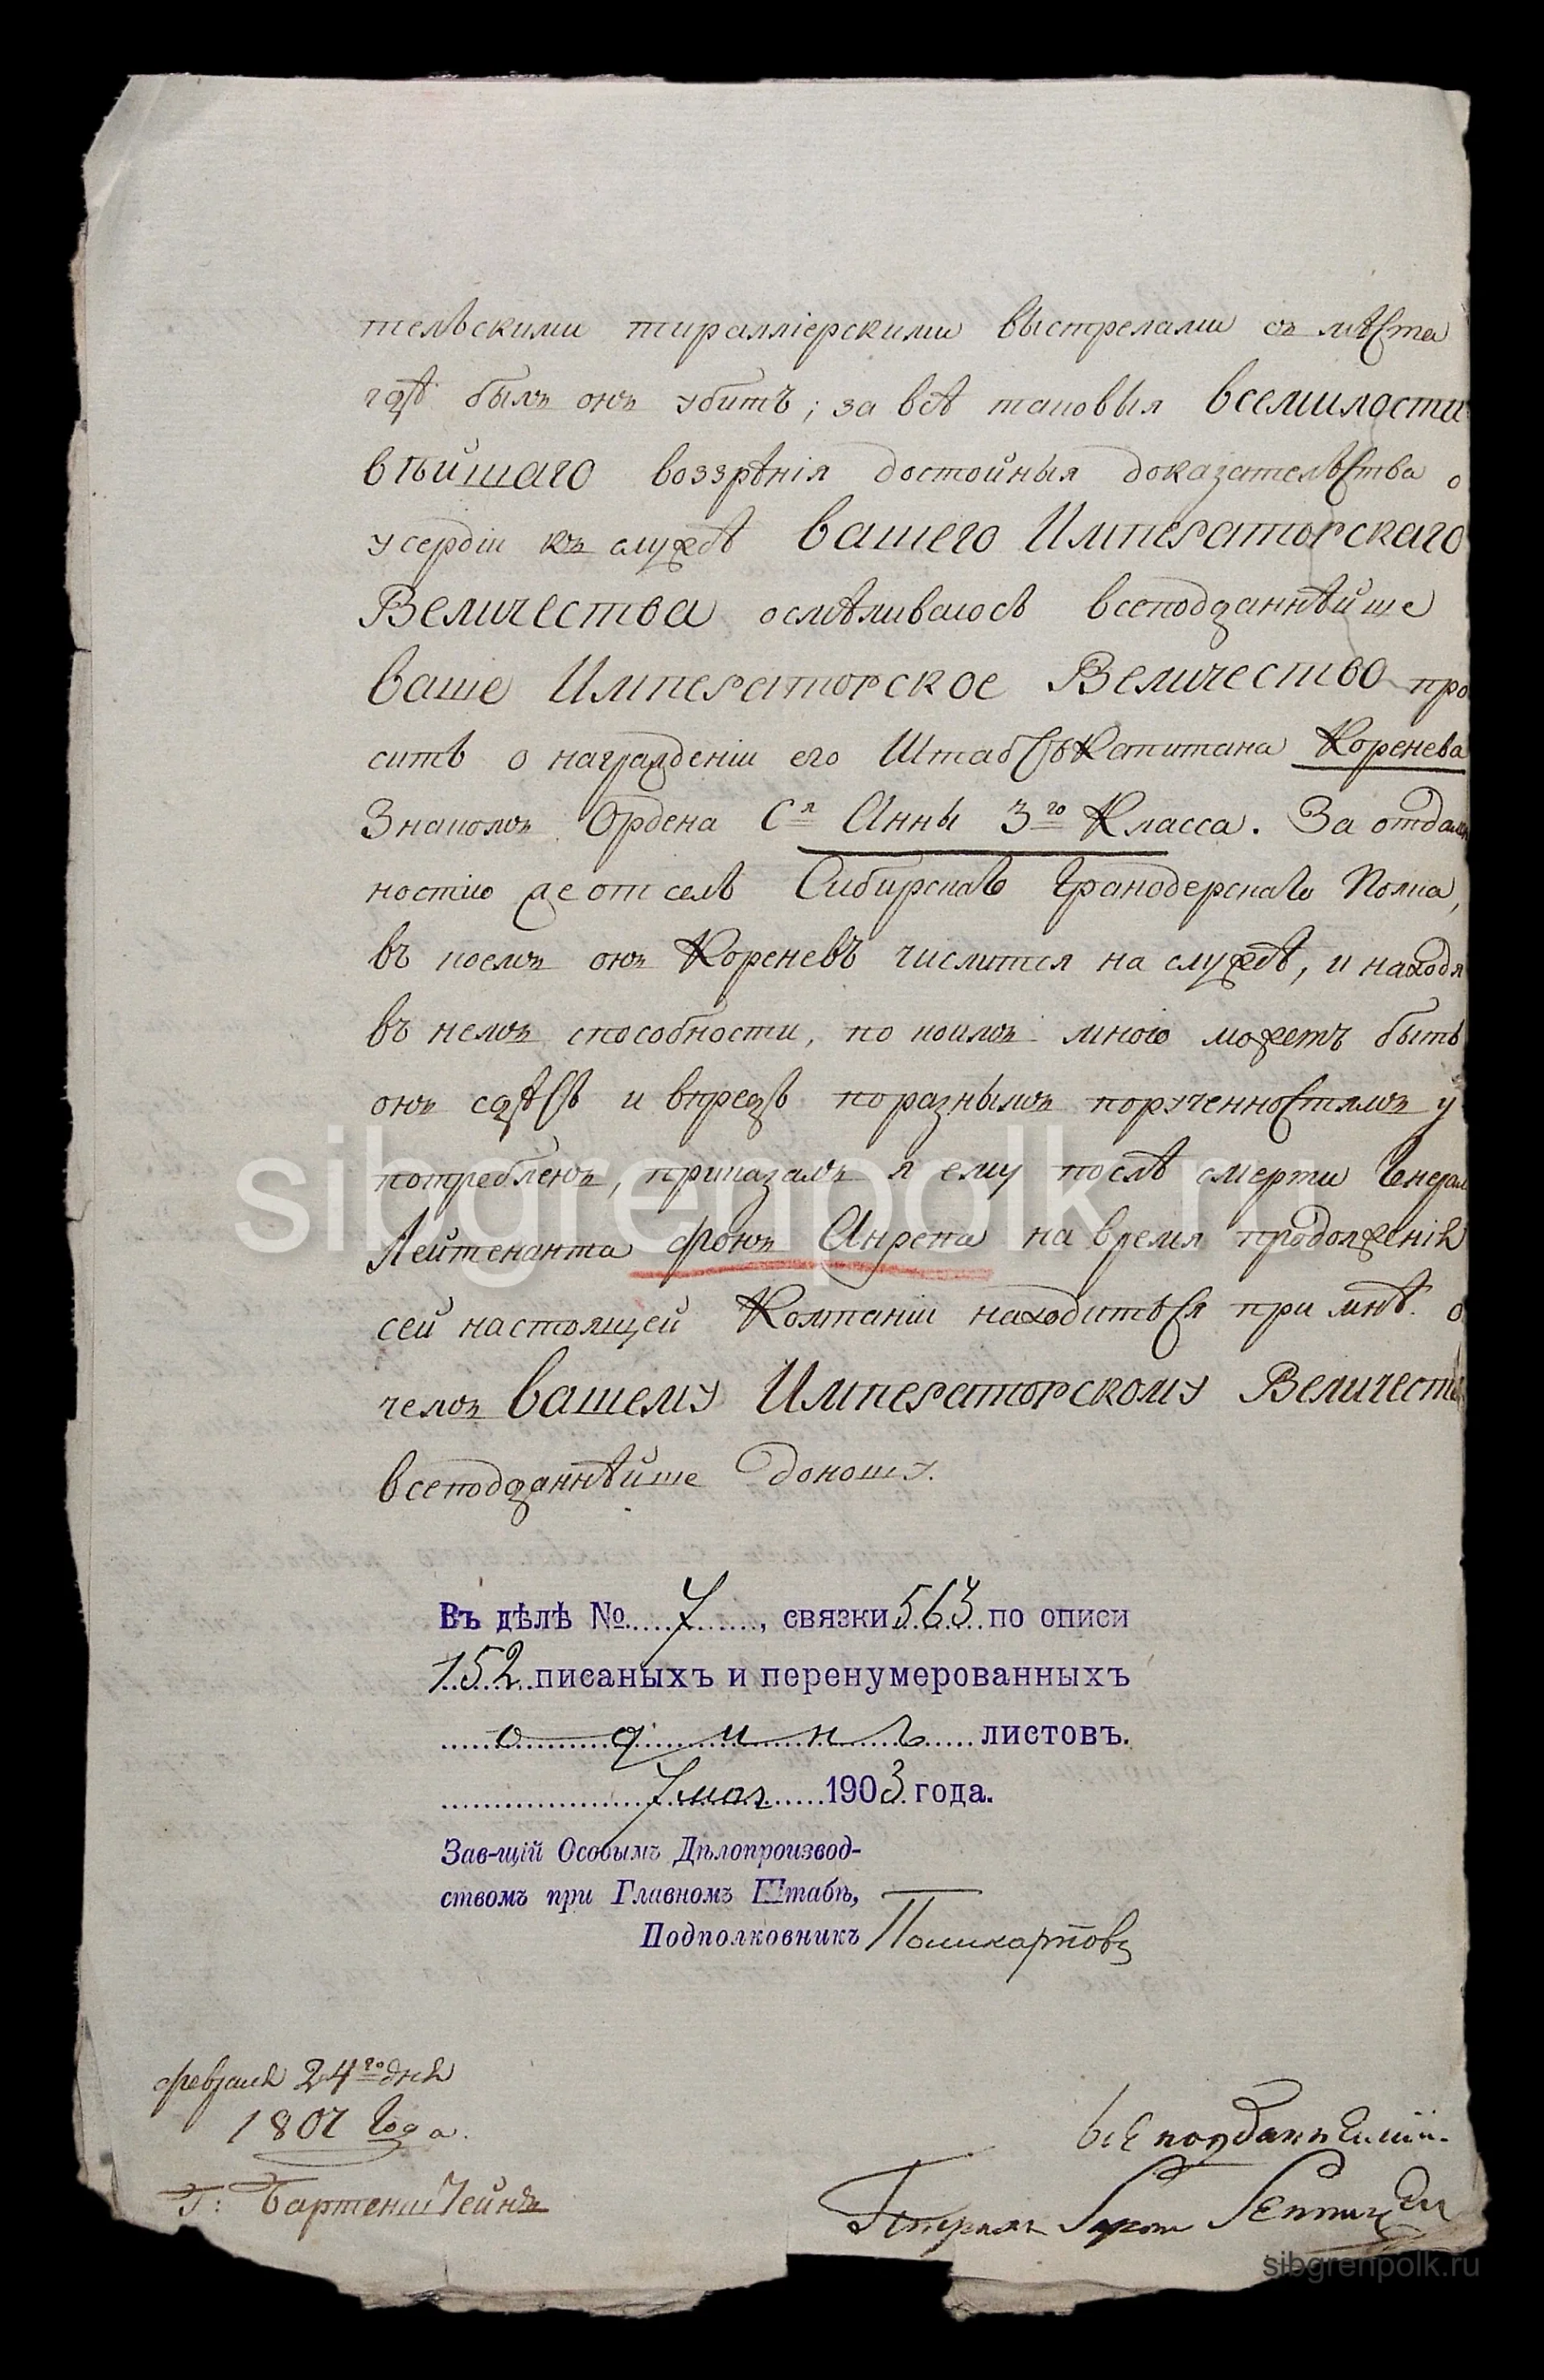 тельскими тираллiерскими выстрелами съ мѣста
гдѣ былъ онъ убитъ; за всѣ таковыя всемилости
вѣйшаго воззрѣнiя достойныя доказательства о
усердiи къ службѣ вашего Императорскаго
Величества осмѣливаюсь всеподданнѣйше
ваше Императорское Величество про
сить о награжденiи его Штабсъ Капитана Коренева
Знакомъ Ордена Сᵗ Анны 3го Класса. За отдален
ностiю де отсель Сибирскаго Гранодерскаго Полка,
въ коемъ онъ Кореневъ числится на службѣ, и находя
въ немъ способности, по коимъ мною можетъ быть
онъ сдѣсь и впредь поразнымъ порученностямъ у
потребленъ, приказалъ я ему послѣ смерти Генерал
Лейтенанта фонъ Анрепа на время продолженiя
сей настоящей Компанiи находиться при мнѣ. о
чемъ вашему Императорскому Величеств
всеподданнѣйше доношу.
Въ дѣлѣ № 7, связки 563 по описи
152 писаныхъ и перенумерованныхъ
одинъ листовъ.
7 мая 1903 года.
Зав-щiй Особымъ Дѣлопроизвод-
ствомъ при Главномъ Штабѣ,
Подполковникъ Поликарповъ
февраля 24го дня
1807 Года.
Г: Бартенштейнъ
всеподданнѣйшiй
Генералъ Баронъ Бенигсен
sibgrenpolk.ru
sibgrenpolk.ru